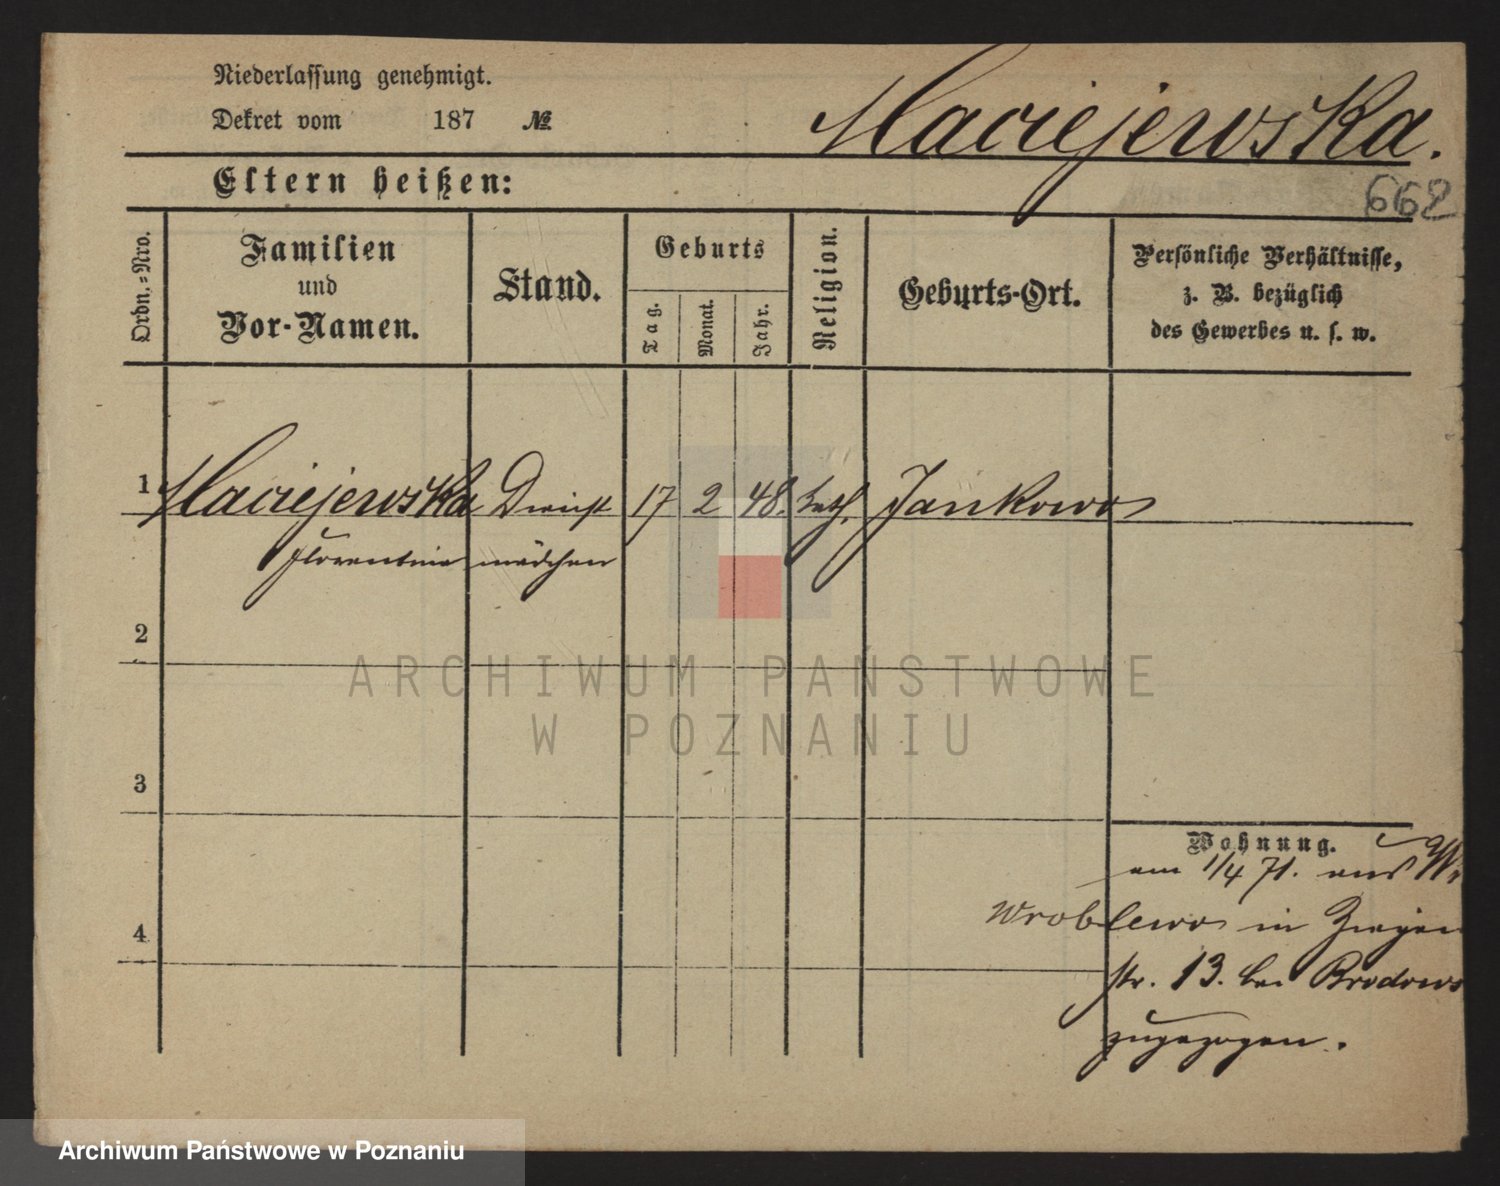 Niederlassung genehmigt.
Dekret vom 187 №
Maciejewska.
Eltern heißen:
662
Ordn.=Nro.
Familien
und
Vor-Namen.
Stand.
Geburts
Tag.
Monat.
Jahr.
Religion.
Geburts-Ort.
Persönliche Verhältnisse,
z. B. bezüglich
des Gewerbes u. s. w.
1 Maciejewska Dienst 17 2 48. kath. Jankowo
Florentine mädchen
2
3
4
Wohnung.
am 1/4 71. aus
Wroblewo in Ziegen
str. 13. bei Brodows
zugezogen.
ARCHIWUM PAŃSTWOWE
W POZNANIU
Archiwum Państwowe w Poznaniu